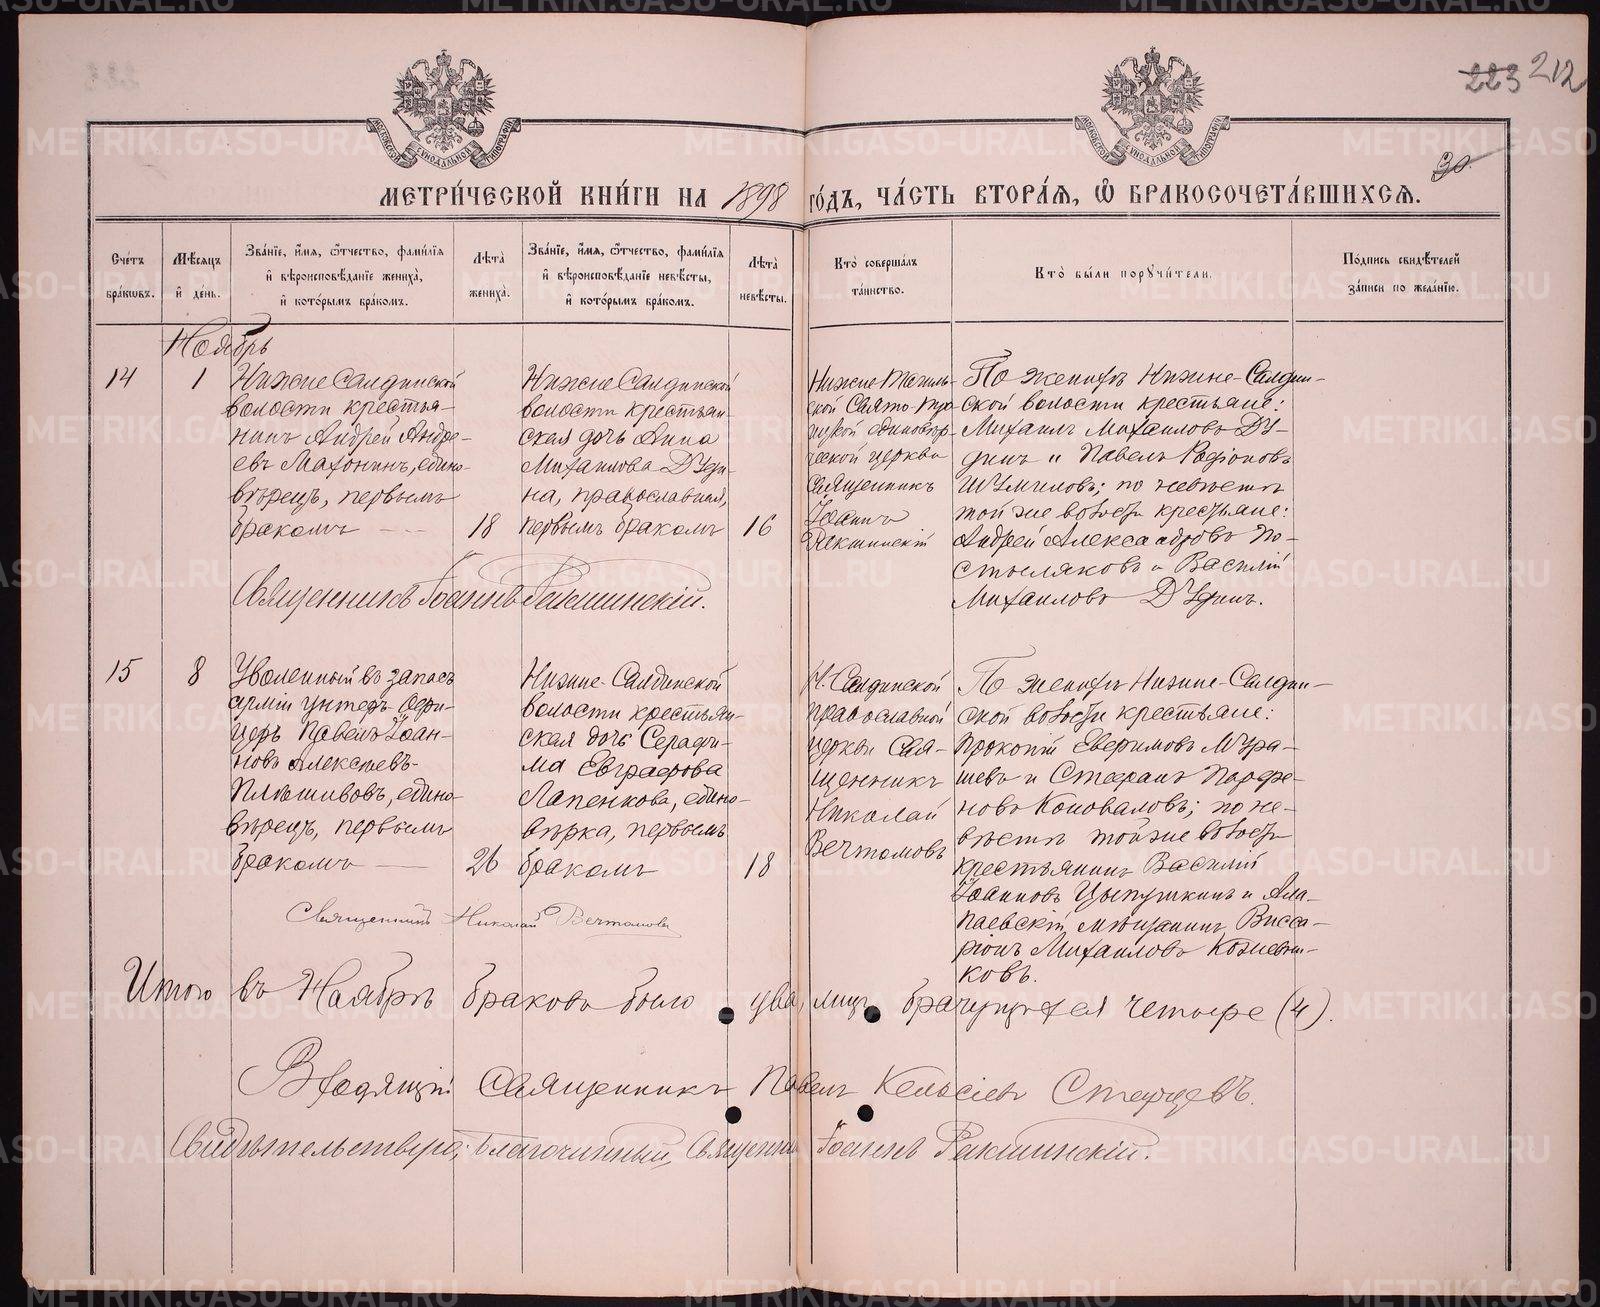 223 212
30
МЕТРИ́ЧЕСКОЙ КНИ́ГИ НА 1898 ГО́ДЪ, ЧА́СТЬ ВТОРА́Я, Ѽ БРАКОСОЧЕТА́ВШИХСЯ.
Сче́тъ
бра́кѡвъ.
Мѣ́сяцъ
и҆ де́нь.
Зва́нїе, и҆́мя, ѻ҆́тчество, фами́лїя
и҆ вѣроисповѣ́данїе жениха̀,
и҆ кото́рымъ бра́комъ.
Лѣ́та
жениха̀.
Зва́нїе, и҆́мя, ѻ҆́тчество, фами́лїя
и҆ вѣроисповѣ́данїе невѣ́сты,
и҆ кото́рымъ бра́комъ.
Лѣ́та
невѣ́сты.
Кто̀ соверша́лъ
та́инство.
Кто̀ бы́ли порꙋчи́тели.
По́дпись свидѣ́телей
за́писи по жела́нїю.
Ноябрь
14
1
Нижне Салдинской
волости крестья-
нинъ Андрей Андре-
евъ Махонинъ, едино-
вѣрецъ, первымъ
бракомъ
18
Нижне Салдинской
волости крестьян-
ская дочь Анна
Михаилова Дуди-
на, православная,
первымъ бракомъ
16
Нижне-Тагиль-
ской Свято-Тро
ицкой единовѣр-
ческой церкви
священникъ
Іоаннъ
Ракшинскій
По женихѣ Нижне-Салдин-
ской волости крестьяне:
Михаилъ Михаиловъ Ду-
динъ и Павелъ Родіоновъ
Шумиловъ; по невѣстѣ
той же волости крестьяне:
Андрей Александровъ По-
стыляковъ и Василій
Михаиловъ Дудинъ.
Священникъ Іоаннъ Ракшинскій.
15
8
Уволенный въ запасъ
арміи унтеръ офи-
церъ Павелъ Іоан-
новъ Алексѣевъ-
Плѣшивовъ, едино-
вѣрецъ, первымъ
бракомъ
26
Нижне-Салдинской
волости крестьян-
ская дочь Серафи-
ма Евграфова
Лапенкова, едино-
вѣрка, первымъ
бракомъ
18
Н. Салдинской
православной
церкви свя-
щенникъ
Николай
Вечтомовъ
По женихѣ Нижне-Салдин-
ской волости крестьяне:
Прокопій Евфимовъ Мура-
шевъ и Стефанъ Парфе-
новъ Коноваловъ; по не-
вѣстѣ той же волости
крестьянинъ Василій
Іоанновъ Цыпушкинъ и Ала-
паевскій мѣщанинъ Висса-
ріонъ Михаиловъ Кожевни-
ковъ.
Священникъ Николай Вечтомовъ
Итого въ Ноябрѣ браковъ было два, лицъ брачущихся четыре (4).
Входящій священникъ Павелъ Старцевъ.
Свидѣтельствую, Благочинный, Священникъ Іоаннъ Ракшинскій.
METRIKI.GASO-URAL.RU